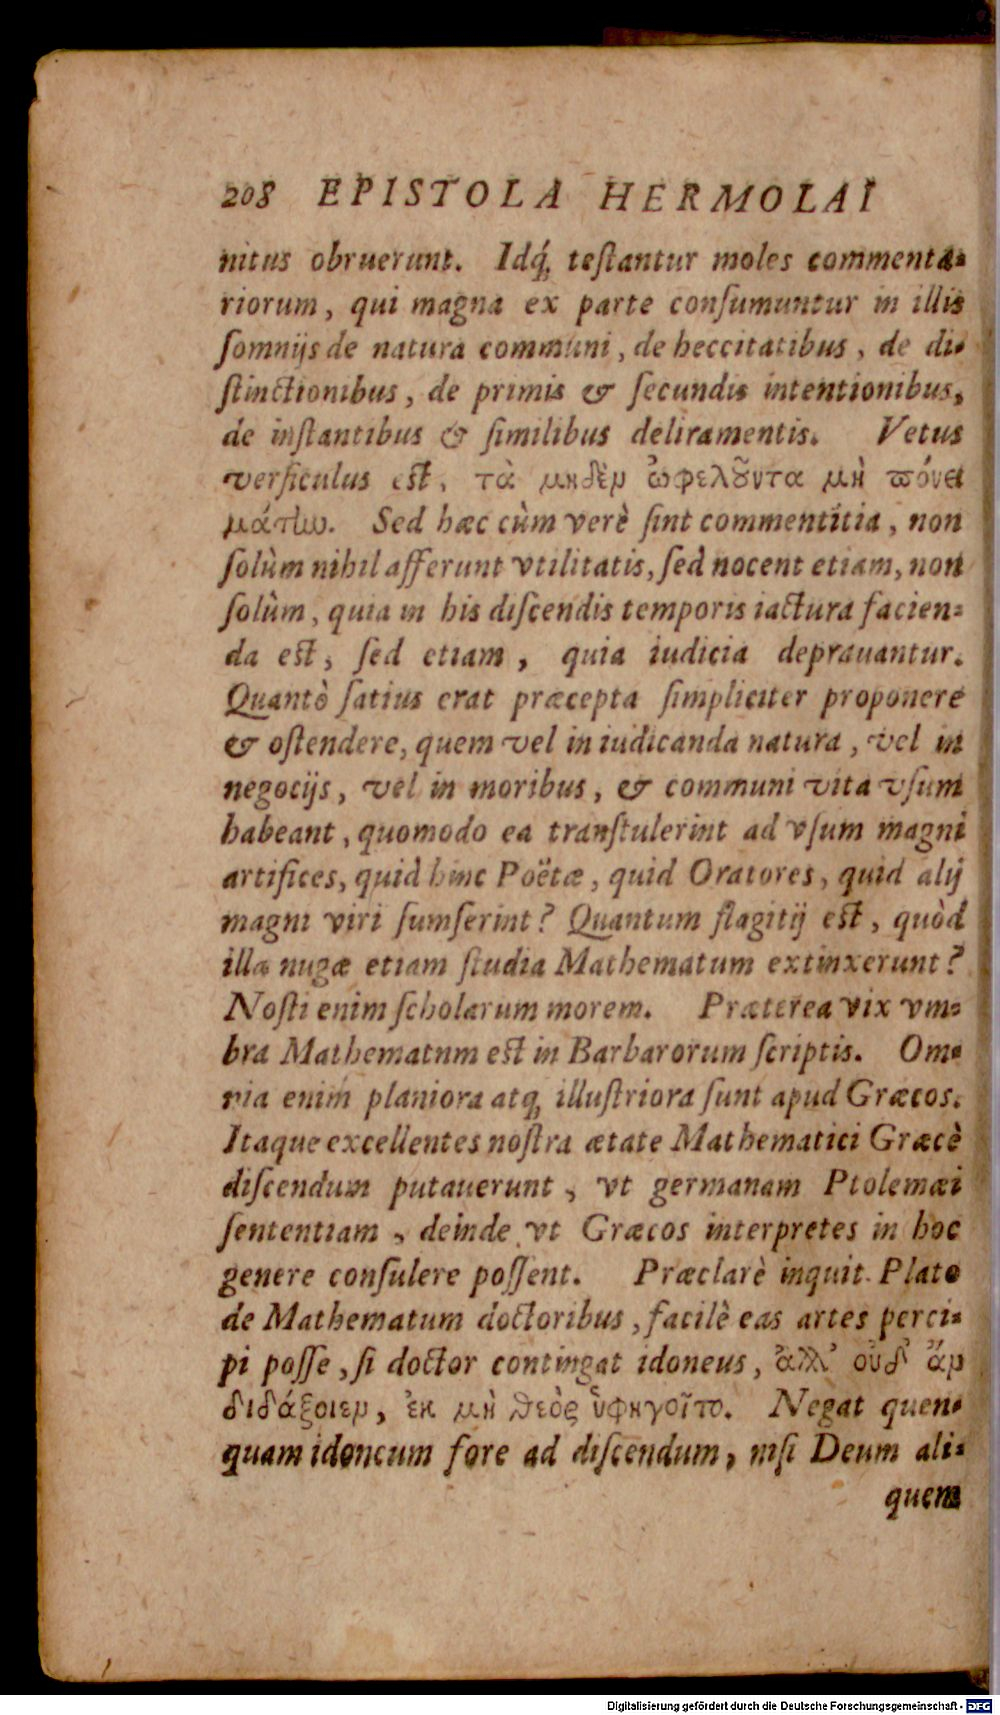 208 EPISTOLA HERMOLAI
nitus obruerunt. Idq́; teſtantur moles commenta-
riorum, qui magna ex parte conſumuntur in illis
ſomnijs de natura communi, de heccitatibus, de di-
ſtinctionibus, de primis & ſecundis intentionibus,
de inſtantibus & ſimilibus deliramentis. Vetus
verſiculus eſt, τὰ μηδὲμ ὠφελοῦντα μὴ πόνει
μάτlω. Sed hæc cùm verè ſint commentitia, non
ſolùm nihil afferunt vtilitatis, ſed nocent etiam, non
ſolùm, quia in his diſcendis temporis iactura facien-
da eſt, ſed etiam, quia iudicia deprauantur.
Quantò ſatius erat præcepta ſimpliciter proponere
& oſtendere, quem vel in iudicanda natura, vel in
negocijs, vel in moribus, & communi vita vſum
habeant, quomodo ea tranſtulerint ad vſum magni
artifices, quid hinc Poëtæ, quid Oratores, quid alij
magni viri ſumſerint? Quantum flagitij eſt, quòd
illæ nugæ etiam ſtudia Mathematum extinxerunt?
Noſti enim ſcholarum morem. Præterea vix vm-
bra Mathematnm eſt in Barbarorum ſcriptis. Om-
nia enim planiora atq; illuſtriora ſunt apud Græcos.
Itaque excellentes noſtra ætate Mathematici Græcè
diſcendum putauerunt, vt germanam Ptolemæi
ſententiam, deinde vt Græcos interpretes in hoc
genere conſulere poſſent. Præclarè inquit Plato
de Mathematum doctoribus, facilè eas artes perci-
pi poſſe, ſi doctor contingat idoneus, ἀλλ’ οὐδ’ ἂμ
διδάξοιεμ, ἐκ μὴ θεὸς ὑφηγοῖτο. Negat quen-
quam idoneum fore ad diſcendum, niſi Deum ali-
quem
Digitalisierung gefördert durch die Deutsche Forschungsgemeinschaft - DFG